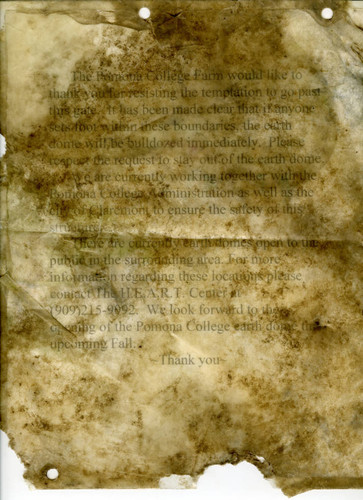 The Pomona College Farm would like to
thank you for resisting the temptation to go past
this gate. It has been made clear that if anyone
sets foot within these boundaries, the earth
dome will be bulldozed immediately. Please
respect the request to stay out of the earth dome
we are currently working together with the
Pomona College Administration as well as the
City of Claremont to ensure the safety of this
structure.
There are currently earth domes open to the
public in the surrounding area. For more
information regarding these locations please
contact The H.E.A.R.T. Center at
(909)215-9092. We look forward to the
opening of the Pomona College earth dome this
upcoming Fall.
~Thank you~